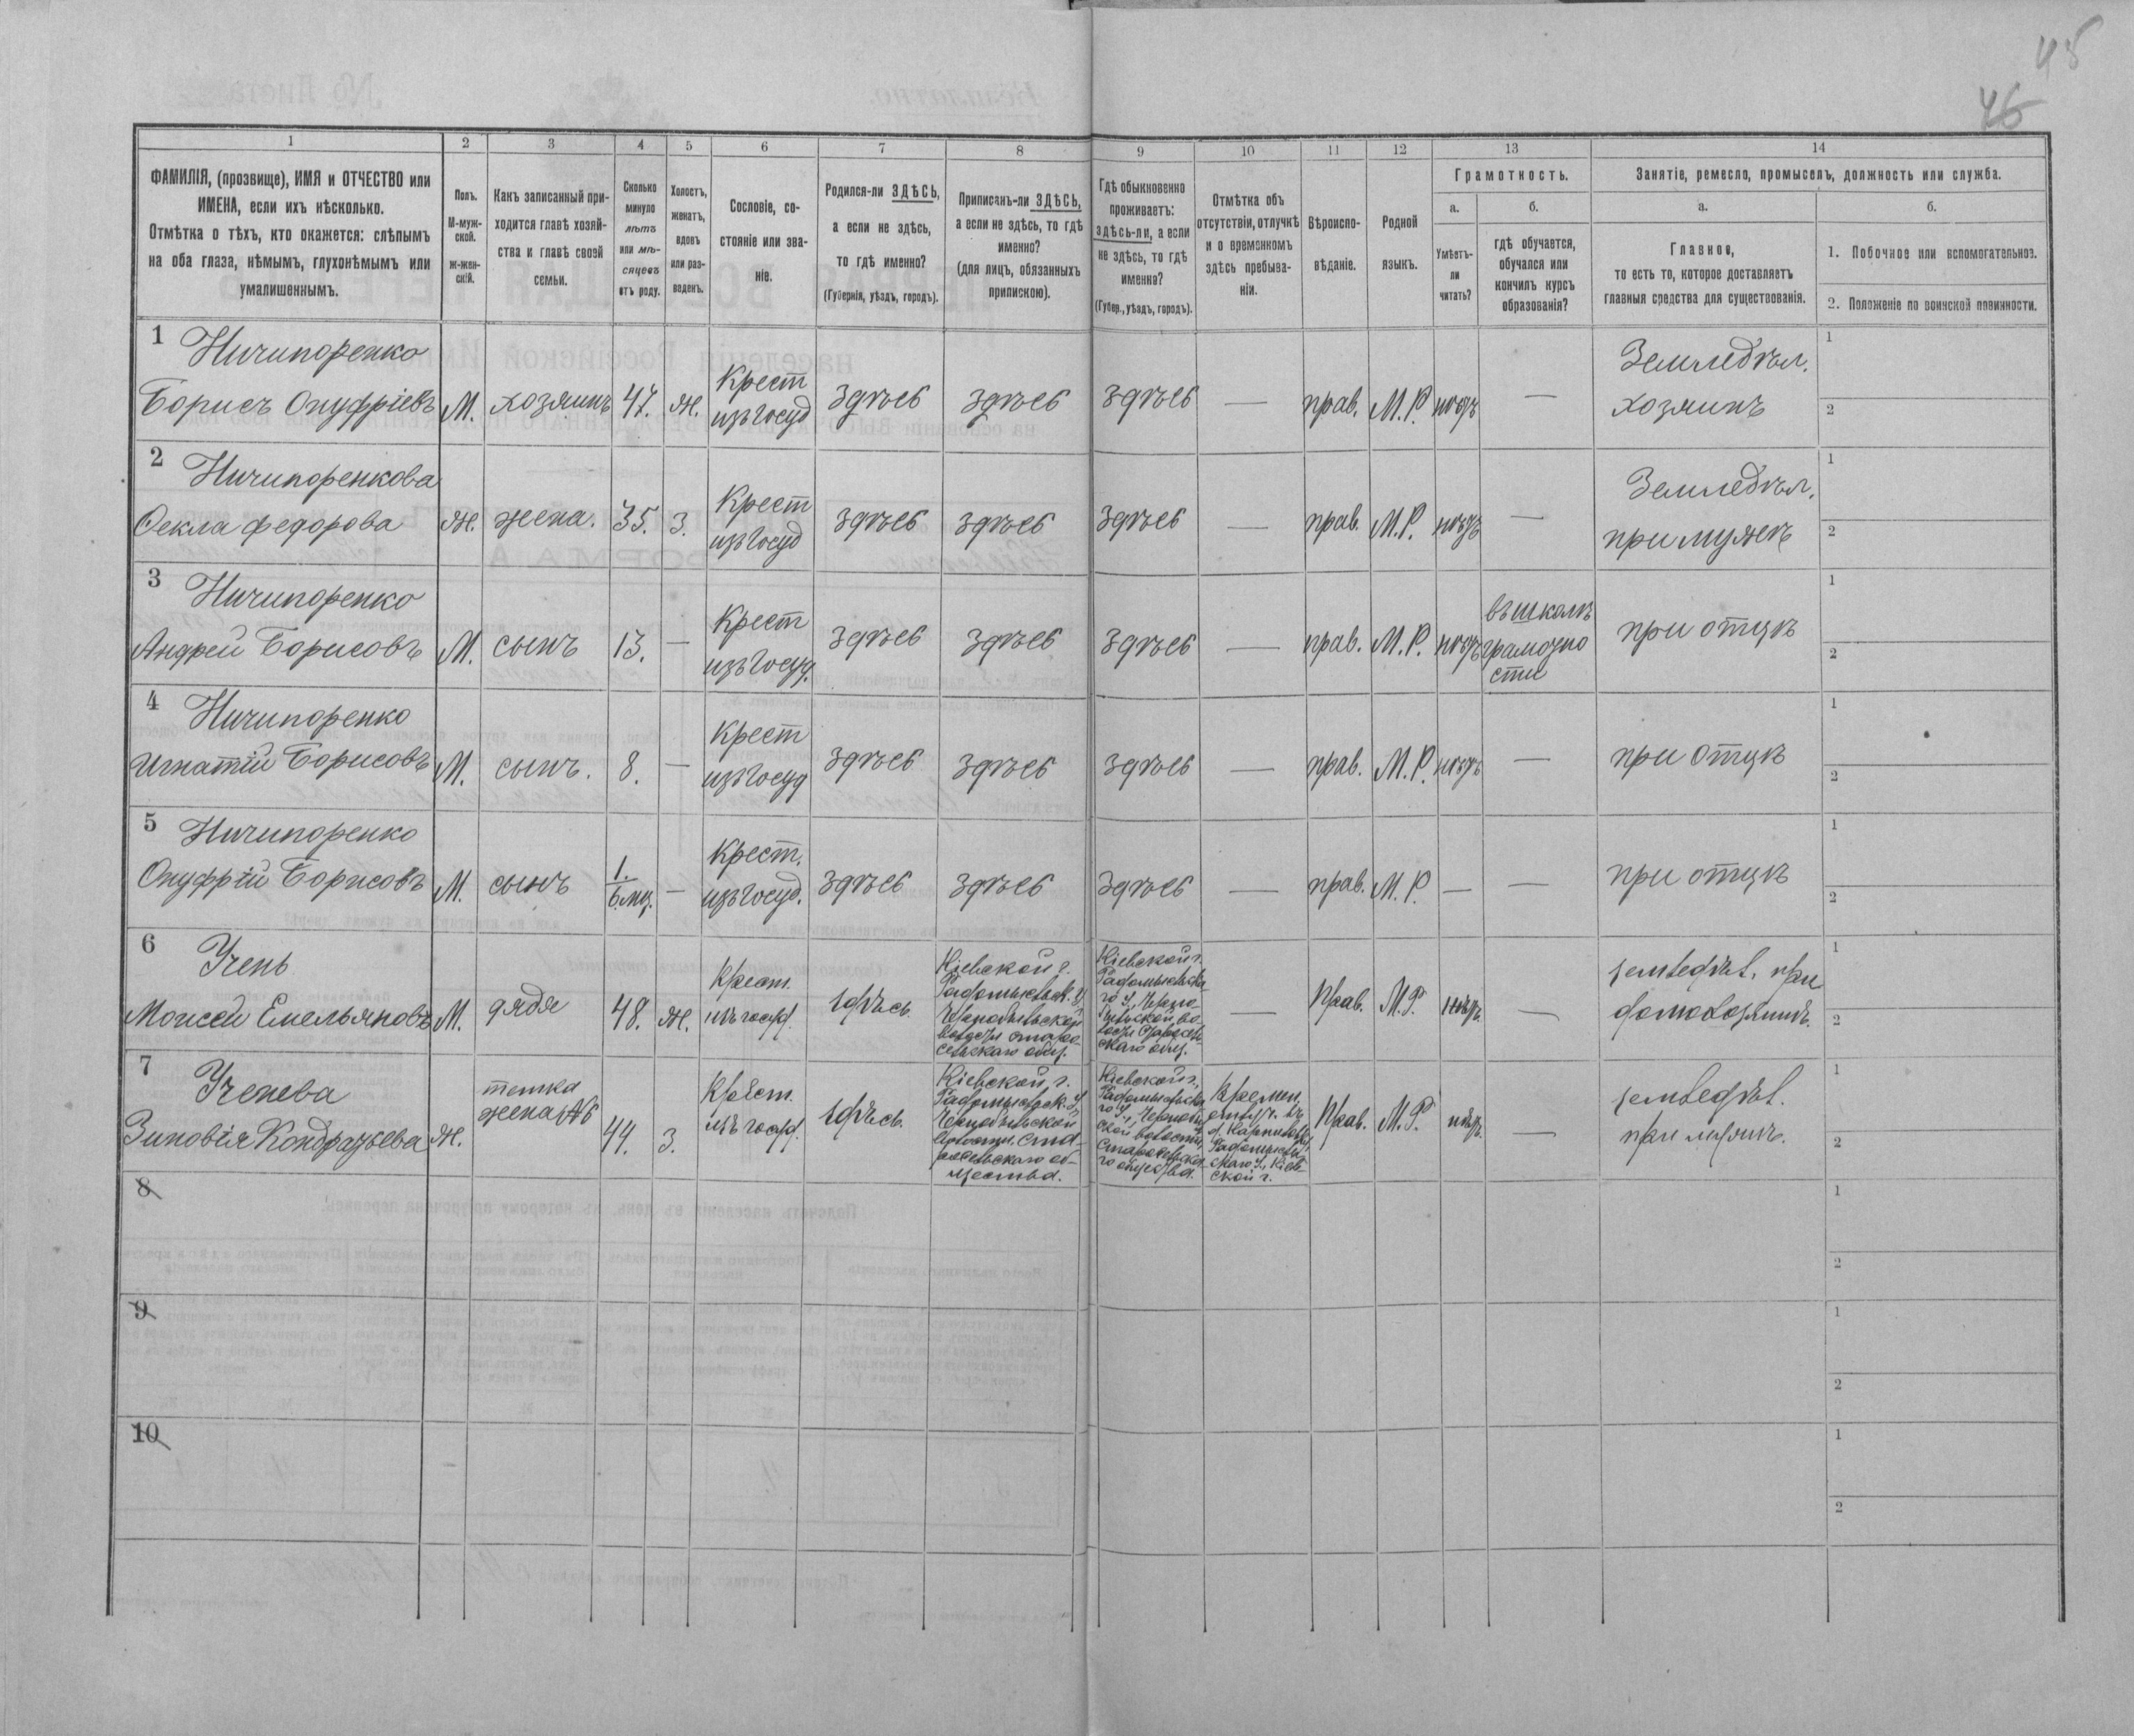 45
46
1
2
3
4
5
6
7
8
9
10
11
12
13
14
ФАМИЛІЯ, (прозвище), ИМЯ и ОТЧЕСТВО или
ИМЕНА, если ихъ нѣсколько.
Отмѣтка о тѣхъ, кто окажется: слѣпымъ
на оба глаза, нѣмымъ, глухонѣмымъ или
умалишеннымъ.
Полъ.
М-муж-
ской.
ж-жен-
скій.
Какъ записанный при-
ходится главѣ хозяй-
ства и главѣ своей
семьи.
Сколько
минуло
лѣтъ
или мѣ-
сяцевъ
отъ роду.
Холостъ,
женатъ,
вдовъ
или раз-
веденъ.
Сословіе, со-
стояніе или зва-
ніе.
Родился-ли ЗДѢСЬ,
а если не здѣсь,
то гдѣ именно?
(Губернія, уѣздъ, городъ).
Приписанъ-ли ЗДѢСЬ,
а если не здѣсь, то гдѣ
именно?
(для лицъ, обязанныхъ
припискою).
Гдѣ обыкновенно
проживаетъ:
здѣсь-ли, а если
не здѣсь, то гдѣ
именно?
(Губер., уѣздъ, городъ).
Отмѣтка объ
отсутствіи, отлучкѣ
и о временномъ
здѣсь пребыва-
ніи.
Вѣроиспо-
вѣданіе.
Родной
языкъ.
Грамотность.
а.
Умѣетъ-
ли
читать?
б.
гдѣ обучается,
обучался или
кончилъ курсъ
образованія?
Занятіе, ремесло, промыселъ, должность или служба.
а.
Главное,
то есть то, которое доставляетъ
главныя средства для существованія.
б.
1. Побочное или вспомогательное.
2. Положеніе по воинской повинности.
1 Ничипоренко
Борисъ Онуфріевъ М. хозяинъ 47. Ж. Крест изъ госуд здѣсь здѣсь здѣсь — прав. М.Р. нѣтъ — Земледѣл. хозяинъ
1
2
2 Ничипоренкова
Ѳекла Федорова Ж. жена. 35. З. Крест изъ госуд здѣсь здѣсь здѣсь — прав. М.Р. нѣтъ — Земледѣл. при мужѣ
1
2
3 Ничипоренко
Андрей Борисовъ М. сынъ 13. — Крест изъ госуд. здѣсь здѣсь здѣсь — прав. М.Р. нѣтъ въ школѣ грамотно сти при отцѣ
1
2
4 Ничипоренко
Игнатій Борисовъ М. сынъ. 8. — Крест изъ госуд здѣсь здѣсь здѣсь — прав. М.Р. нѣтъ — при отцѣ
1
2
5 Ничипоренко
Онуфрій Борисовъ М. сынъ 1. 6. мѣс. — Крест. изъ госуд. здѣсь здѣсь здѣсь — прав. М.Р. — — при отцѣ
1
2
6 Учень
Моисей Емельяновъ М. дядя 48. Ж. Крест. изъ госуд. здѣсь.
Кіевской г.
Радомысльск. у.,
Чернобыльской
волости Старо-
сельскаго общ.
Кіевской г.
Радомысльска-
го у., Черно-
быльской во-
лости Старосель-
скаго общ.
— Прав. М.Р. нѣтъ. —
земледѣл. при
домохозяинѣ.
1
2
7 Ученева
Зиновія Кондратьева Ж.
тетка
жена №6
44. З. Крест. изъ госуд. здѣсь.
Кіевской, г.
Радомысльск. у.,
Чернобыльской
волости, Ста-
росельскаго об-
щества.
Кіевской г.,
Радомысльска-
го у., Чернобыль
ской волости,
Старосельска-
го общества.
Времен.
отлуч. въ
д. Карпиловку
Радомысль-
скаго у., Кіев-
ской г.
Прав. М.Р. нѣтъ. —
земледѣл.
при мужѣ.
1
2
8
1
2
9
1
2
10
1
2